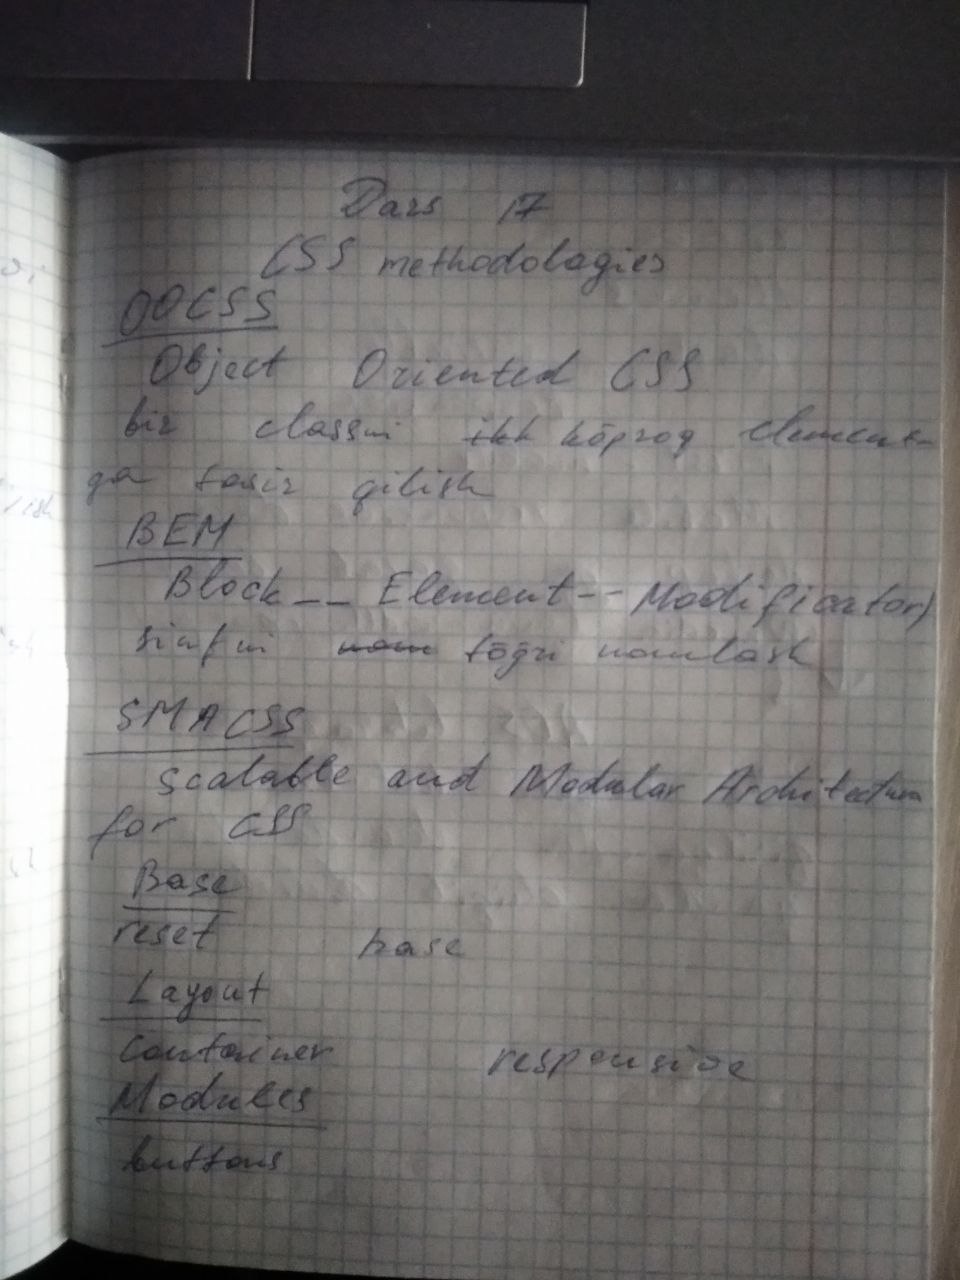 Dars 17
CSS methodologies
OOCSS
Object Oriented CSS
bir classni köproq element-
ga tasir qilish
BEM
Block__Element--Modificator)
sinfni nom töğri nomlash
SMACSS
Scalable and Modular Architecture
for CSS
Base
reset base
Layout
Container responsive
Modules
buttons